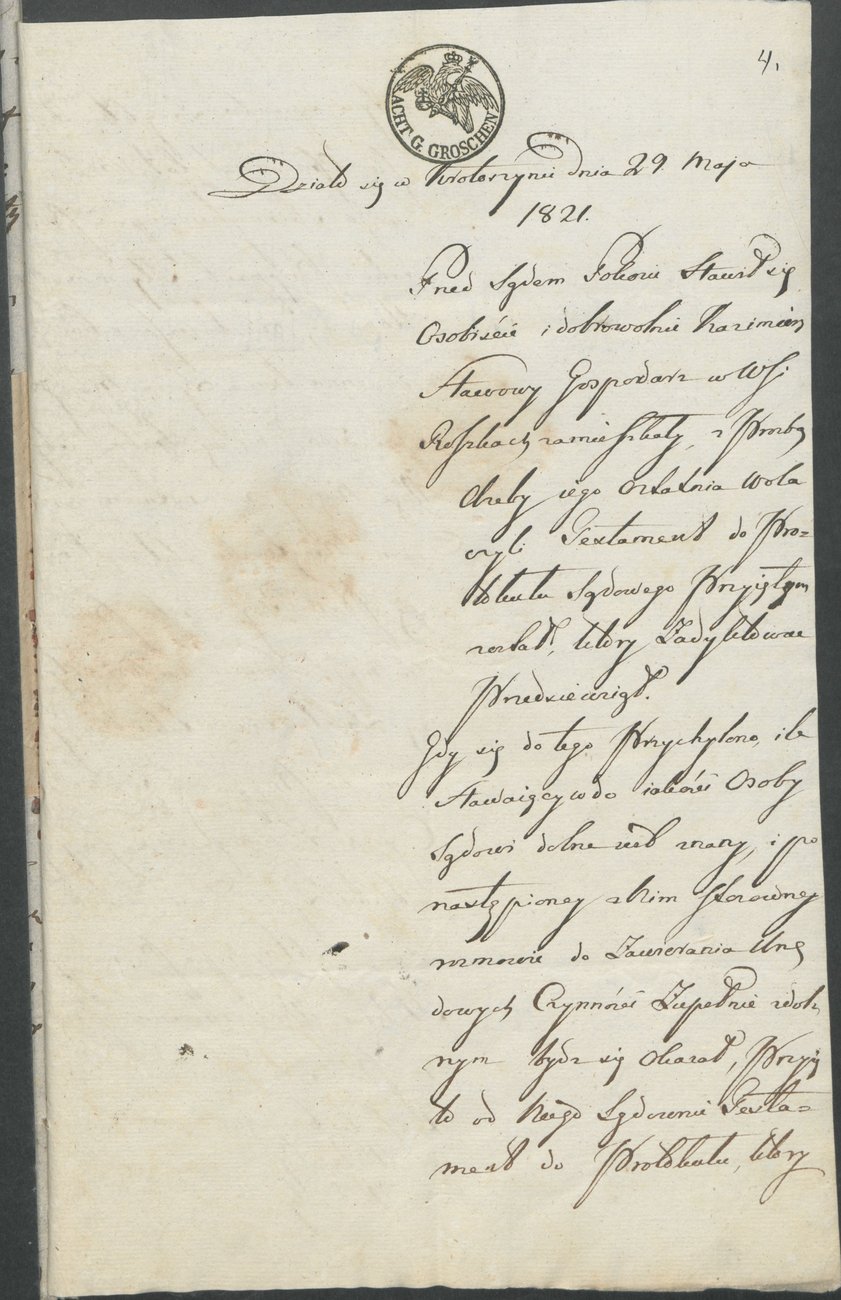 4.
ACHT G. GROSCHEN
Działo się w Krotoszynie dnia 29 Maja
1821.
Przed Sądem Pokoiu Stawił się
Osobiście i dobrowolnie Kazimierz
Stawowy Gospodarz w Wsi
Roszkach zamieszkały, z Prozbą
żeby iego ostatnia wola
czyli Testament do Pro=
tokułu Sądowego Przyiętym
został, który Zadyktować
Przedsiewziął.
Gdy się do tego Przychylono, ile
Stawaiący w do iakości Osoby
Sądowi dolne znany, i po
nastąpioney z Nim stosowney
rozmowie do Zawierania Urzę
dowych Czynności Zupełnie zdol
nym bydz się okazał, Przyię
to od Niego Sądownie Testa=
ment do Protokułu, który